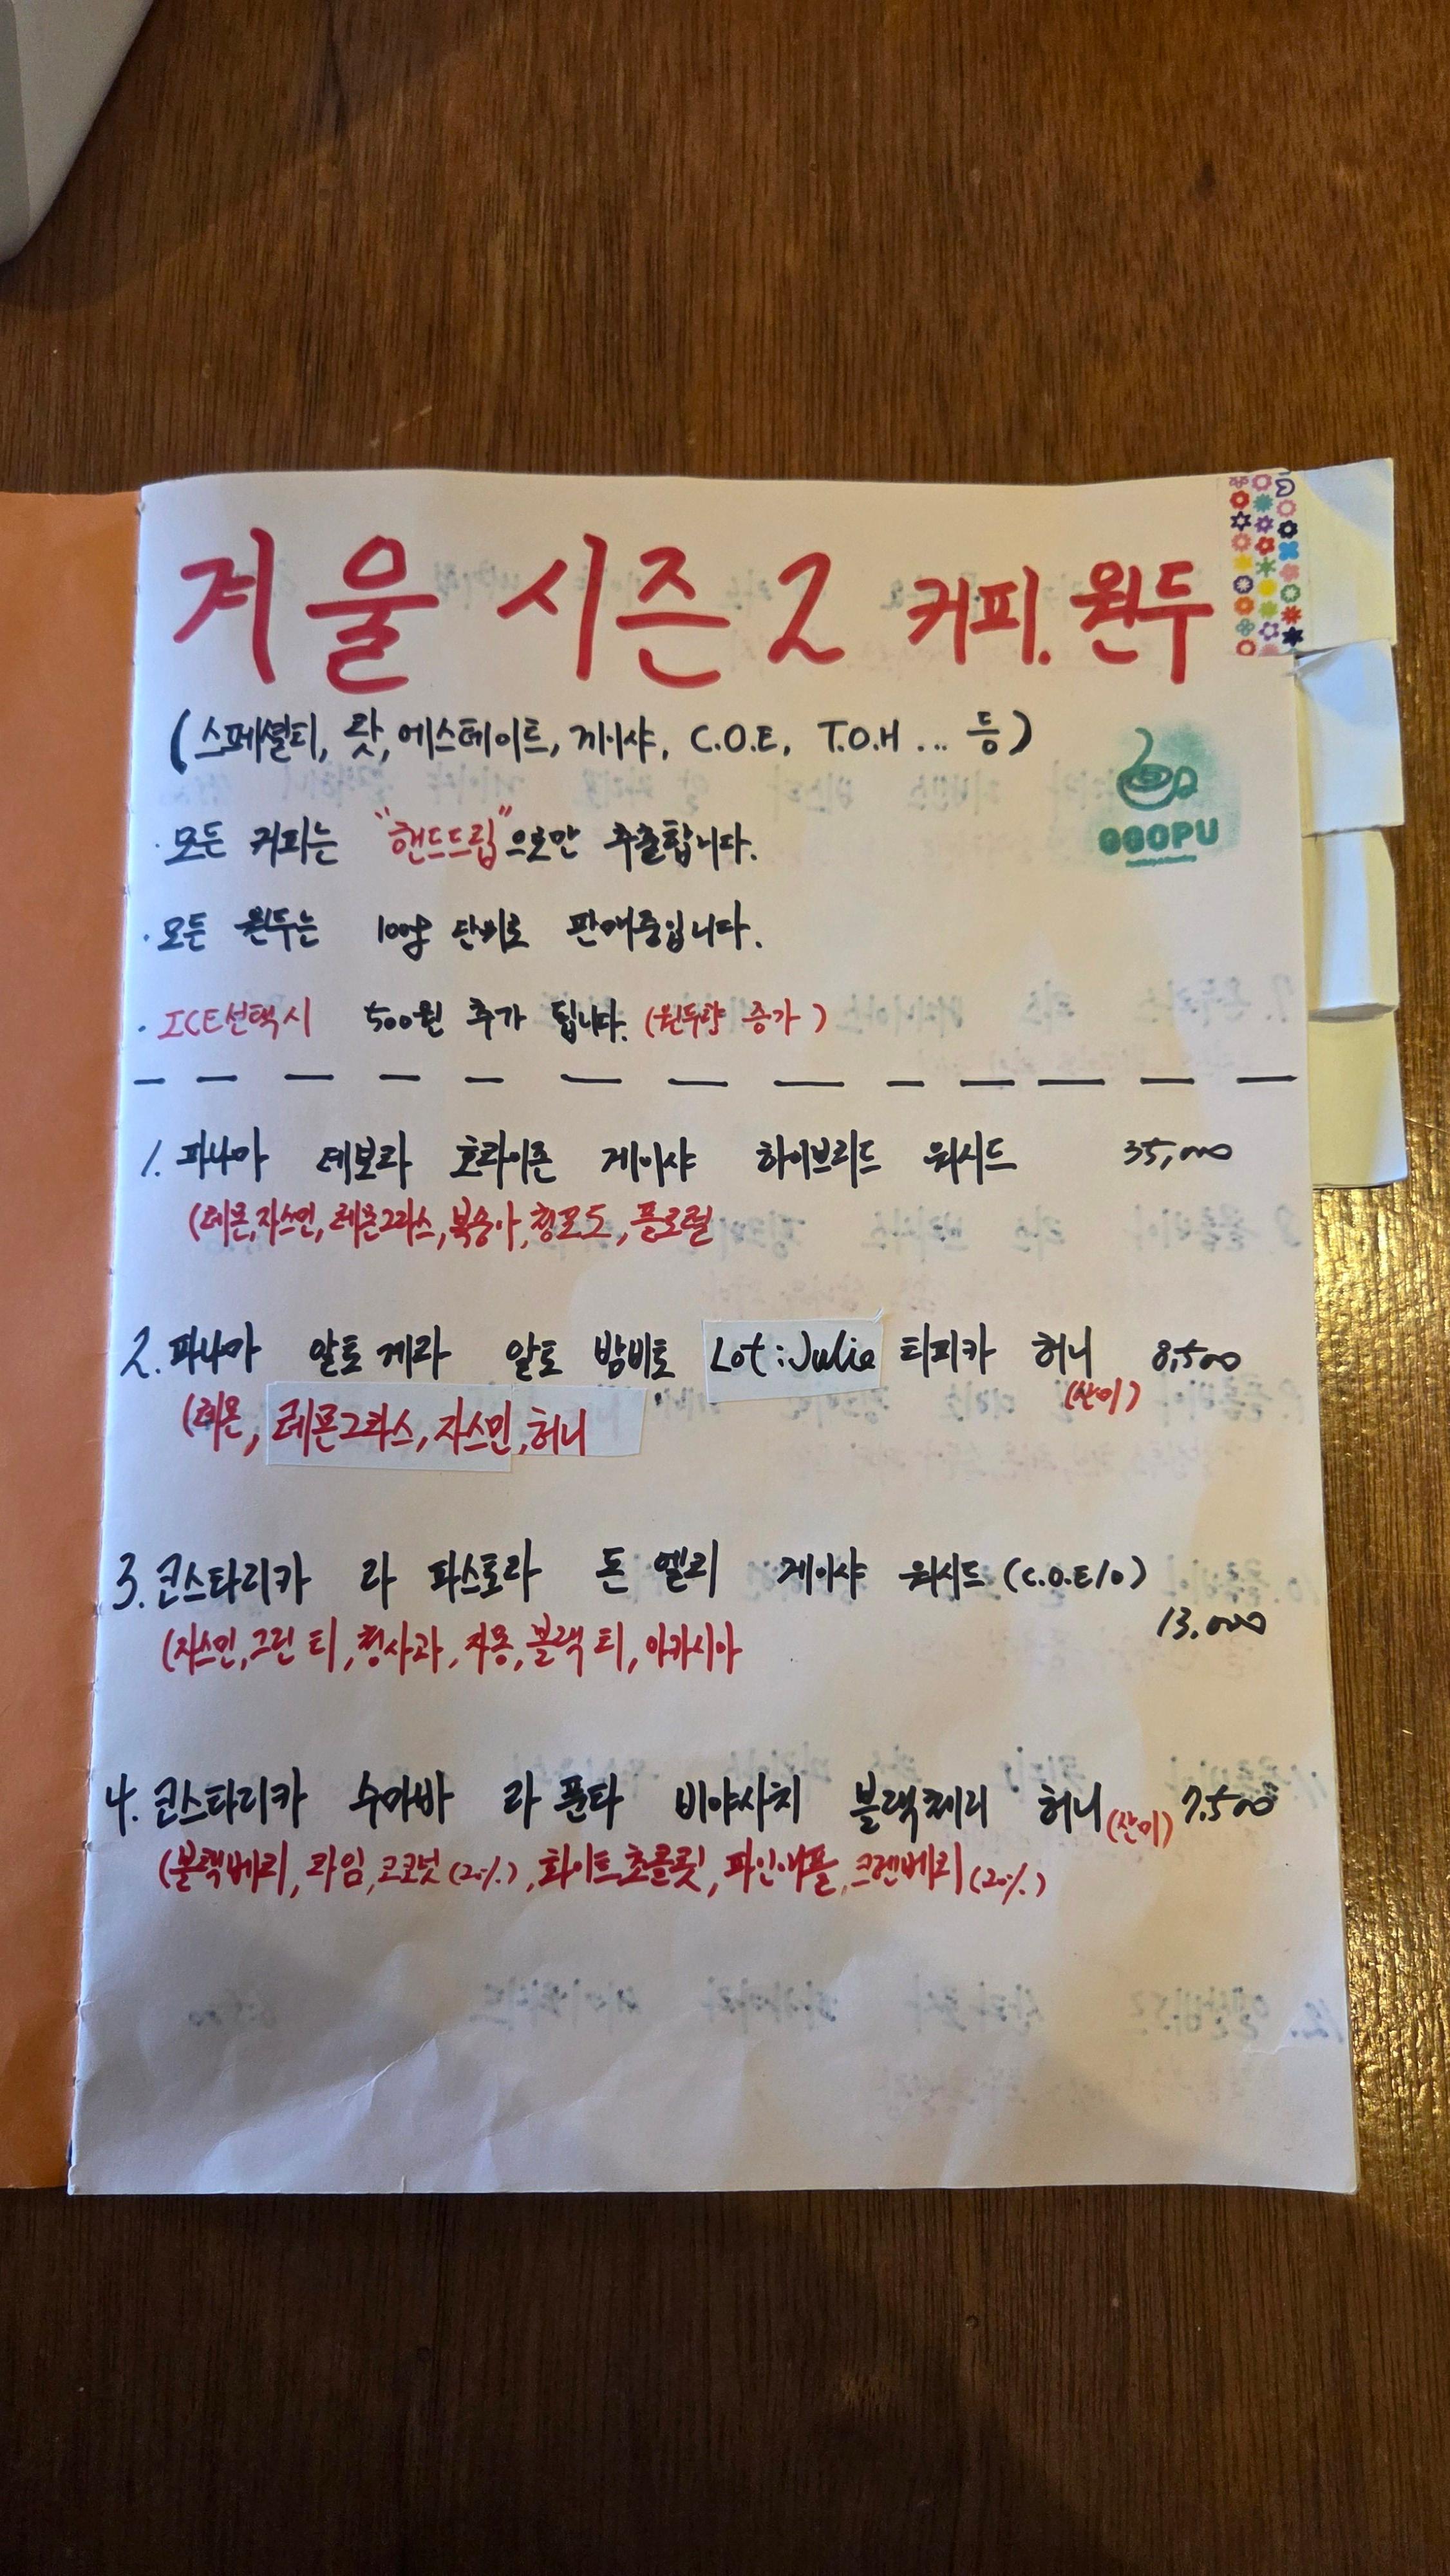 겨울 시즌2 커피. 원두
(스페셜티, 랏, 에스테이트, 게이샤, C.O.E, T.O.H ... 등)
OGOPU
· 모든 커피는 "핸드드립"으로만 추출합니다.
· 모든 원두는 100g 단위로 판매중입니다.
· ICE선택시 500원 추가 됩니다. (원두량 증가)
1. 파나마 데보라 호라이즌 게이샤 하이브리드 워시드 35,000
(레몬, 자스민, 레몬그라스, 복숭아, 청포도, 플로럴
2. 파나마 알토 게라 알토 밤비토 Lot:Julie 티피카 허니 8,500
(산미)
(레몬, 레몬그라스, 자스민, 허니
3. 코스타리카 라 파스토라 돈 엘리 게이샤 워시드 (C.O.E/O)
13.000
(자스민, 그린 티, 청사과, 자몽, 블랙 티, 아카시아
4. 코스타리카 수마바 라 푼타 비야사치 블랙체리 허니 (산미) 7.500
(블랙베리, 라임, 코코넛(20%), 화이트초콜릿, 파인애플, 크랜베리(20%)